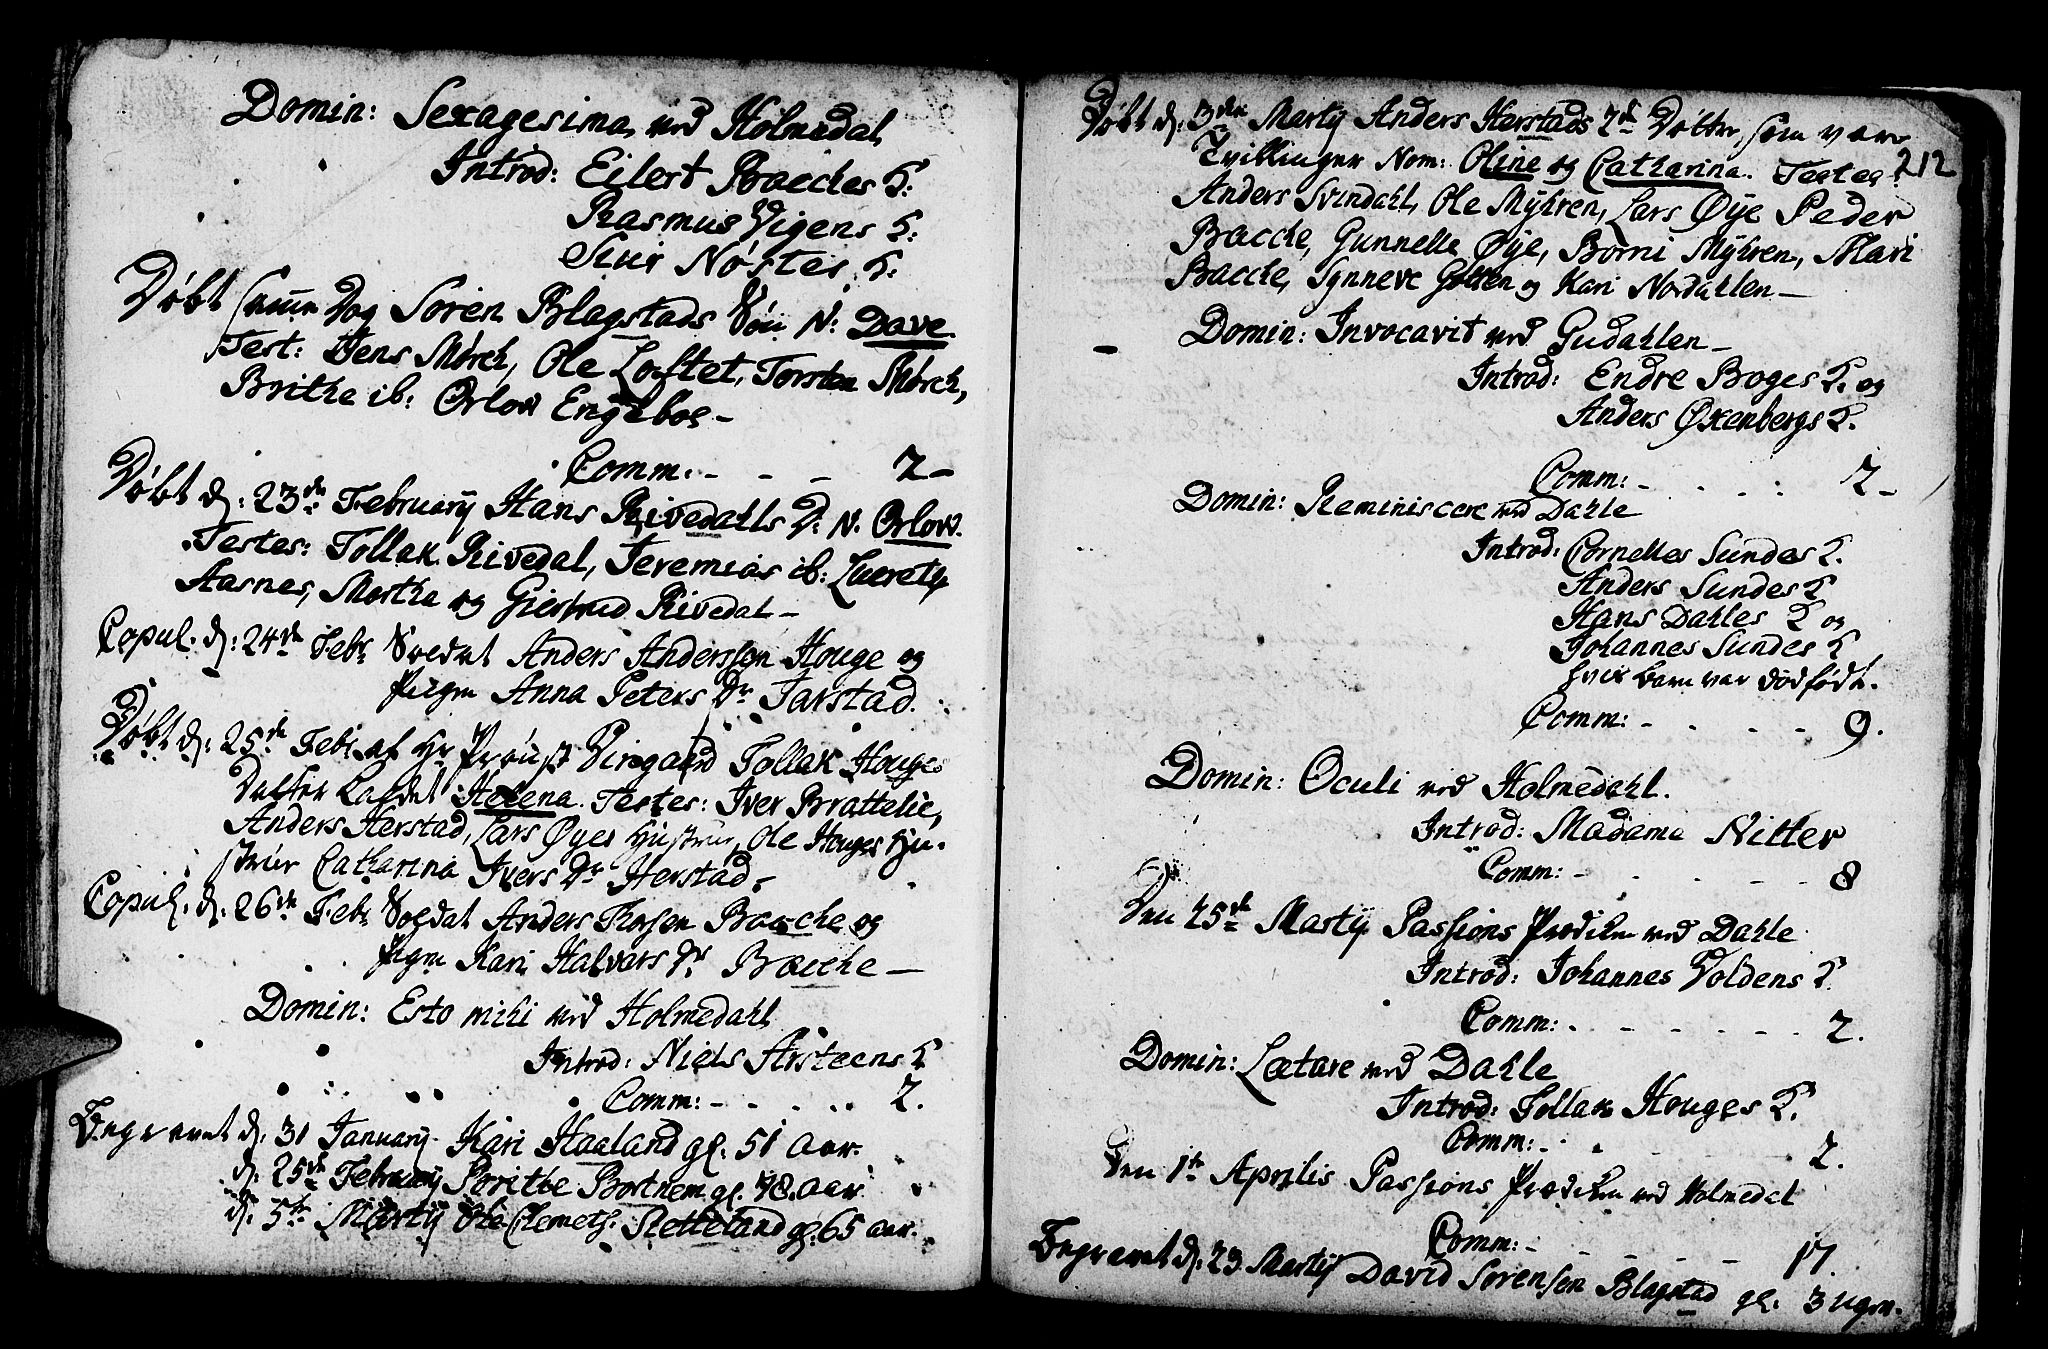 Domin: Sexagesima ved Holmedal
Introd: Eilert Bacches K:
Rasmus Vigens K:
Siur Nøstes K:
Døbt samme Dag Søren Blagstads Søn N: Dave
Test: Jens Mørch, Ole Loftet, Torsten Mørch,
Brithe ib: Orlow Engeboe –
Comm: – – – 2 –
Døbt d: 23de February Hans Rivedahls D: N. Orlow.
Testes: Tollak Rivedal, Jeremias ib:
Aasnes, Marthe og Giertrud Rivedal –
Copul. d: 24de Febr Soldat Anders Anderssen Houge og
Pigen Anna Peters Dr Jarstad.
Døbt d: 25de Febr. af Hr Proust Tollak Houges
Datter kaldet Helena. Testes: Iver Brattelie,
Anders Herstad, Lars Øyes Hustrue, Ole Houges Hu-
strue Catharina Ivers Dr Herstad –
Copul. d: 26de Febr Soldat Anders Bacche og
Pigen Kari Halvars Dr Bacche –
Domin: Esto mihi ved Holmedahl
Introd: Niels Arsteens K
Comm: – – . .. 2.
Begravet d: 31 January Kari Haaland gl. 51 aar.
d. 25de February Brithe Bortnem gl. 78 aar
d. 5te Martij Ole Clemets: Stetteland gl. 65 aar.
Døbt d: 3de Martij Anders Herstads 2de Døttre, som vare
Tvillinger Nom: Oline og Catharina. Testes: 212
Anders Svindahl, Ole Myhren, Lars Øye Peder
Bacche, Gunnelle Øye, Borni Myhren, Mari
Bacche, Synneve og Kari Nordahlen –
Domin: Invocavit ved Gudahlen –
Introd: Endre Boges K. og
Anders Oxenbergs K.
Comm: – . . : 2 –
Domin: Reminiscere ved Dahle
Introd: Cornelles Sundes K.
Anders Sundes K
Hans Dahles K og
Johannes Sundes K
hvis barn var dødfødt.
Comm: – . – – 9.
Domin: Oculi ved Holmedahl.
Introd: Madame Nitter
Comm: – . . – – 8
Den 25de Martij Passions Prædiken ved Dahle
Introd: Johannes Voldens K
Comm: . – – – – 2.
Domin: Lætare ved Dahle
Introd: Tollak Houges K.
Comm: – . . 2.
Den 1te Aprilis Passions Prædiken ved Holmedal
Comm: – – – – – 17.
Begravet d: 23 Martij David Sørensen Blagstad gl. 3 ugen.